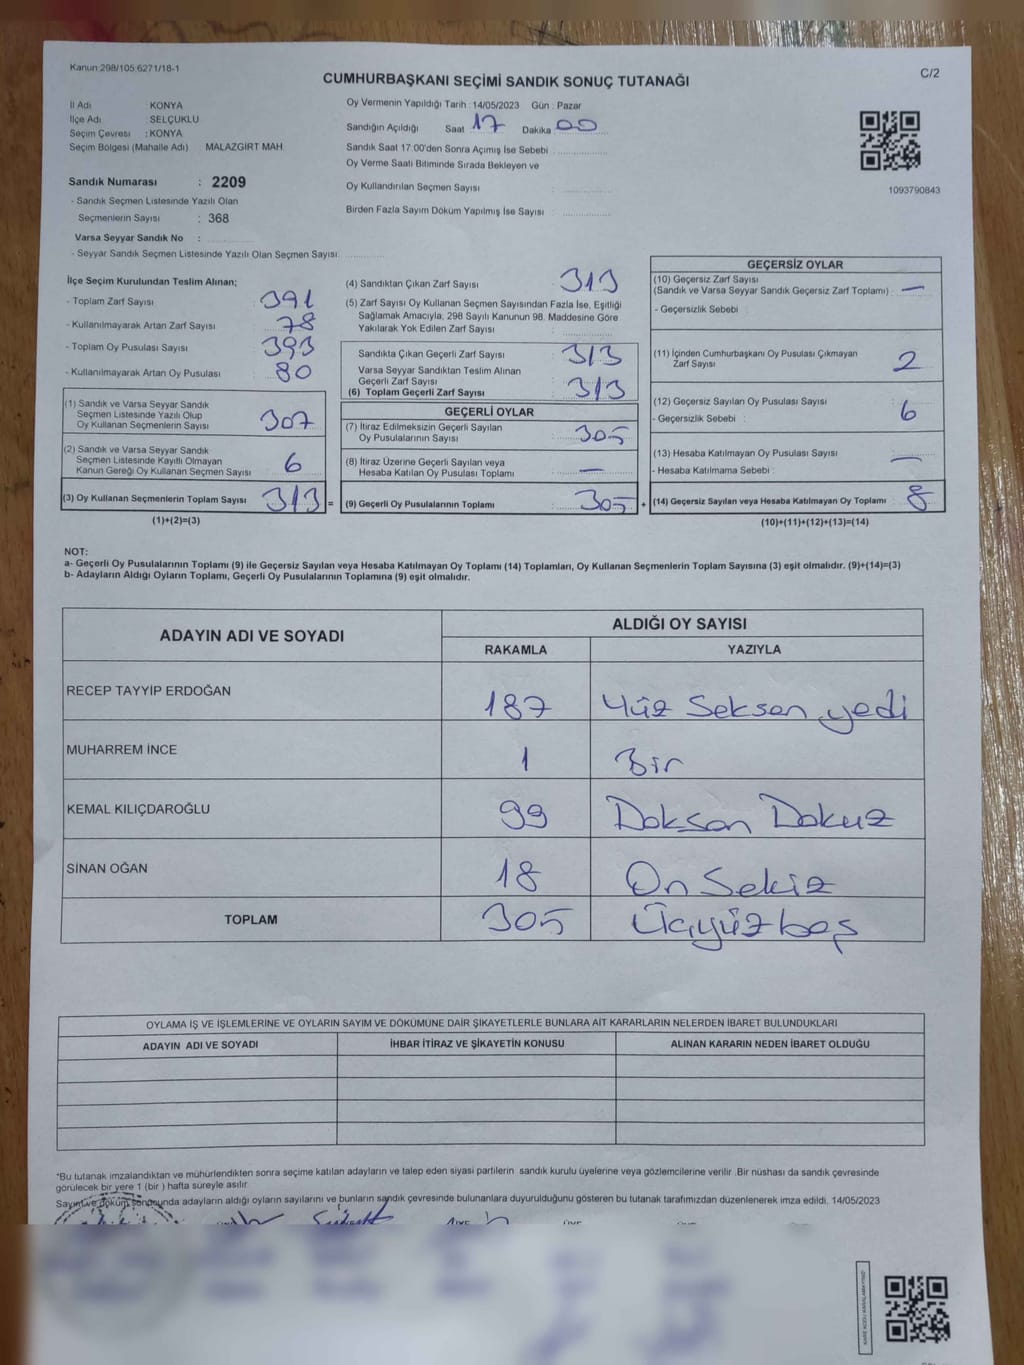 Kanun:298/105;6271/18-1
C/2
CUMHURBAŞKANI SEÇİMİ SANDIK SONUÇ TUTANAĞI
İl Adı : KONYA
İlçe Adı : SELÇUKLU
Seçim Çevresi : KONYA
Seçim Bölgesi (Mahalle Adı) MALAZGİRT MAH.
Oy Vermenin Yapıldığı Tarih : 14/05/2023 Gün : Pazar
Sandığın Açıldığı Saat 17 Dakika 00
Sandık Saat 17:00'den Sonra Açımış İse Sebebi :
Oy Verme Saati Bitiminde Sırada Bekleyen ve
Oy Kullandırılan Seçmen Sayısı :
Birden Fazla Sayım Döküm Yapılmış İse Sayısı :
1093790843
Sandık Numarası : 2209
- Sandık Seçmen Listesinde Yazılı Olan
Seçmenlerin Sayısı : 368
Varsa Seyyar Sandık No :
- Seyyar Sandık Seçmen Listesinde Yazılı Olan Seçmen Sayısı:
İlçe Seçim Kurulundan Teslim Alınan;
- Toplam Zarf Sayısı : 391
- Kullanılmayarak Artan Zarf Sayısı : 78
- Toplam Oy Pusulası Sayısı : 393
- Kullanılmayarak Artan Oy Pusulası : 80
(1) Sandık ve Varsa Seyyar Sandık
Seçmen Listesinde Yazılı Olup
Oy Kullanan Seçmenlerin Sayısı : 307
(2) Sandık ve Varsa Seyyar Sandık
Seçmen Listesinde Kayıtlı Olmayan
Kanun Gereği Oy Kullanan Seçmen Sayısı : 6
(3) Oy Kullanan Seçmenlerin Toplam Sayısı : 313 =
(1)+(2)=(3)
(4) Sandıktan Çıkan Zarf Sayısı : 313
(5) Zarf Sayısı Oy Kullanan Seçmen Sayısından Fazla İse, Eşitliği
Sağlamak Amacıyla, 298 Sayılı Kanunun 98. Maddesine Göre
Yakılarak Yok Edilen Zarf Sayısı :
Sandıkta Çıkan Geçerli Zarf Sayısı : 313
Varsa Seyyar Sandıktan Teslim Alınan
Geçerli Zarf Sayısı :
(6) Toplam Geçerli Zarf Sayısı : 313
GEÇERLİ OYLAR
(7) İtiraz Edilmeksizin Geçerli Sayılan
Oy Pusulalarının Sayısı : 305
(8) İtiraz Üzerine Geçerli Sayılan veya
Hesaba Katılan Oy Pusulası Toplamı : —
(9) Geçerli Oy Pusulalarının Toplamı : 305 +
GEÇERSİZ OYLAR
(10) Geçersiz Zarf Sayısı
(Sandık ve Varsa Seyyar Sandık Geçersiz Zarf Toplamı) : —
- Geçersizlik Sebebi :
(11) İçinden Cumhurbaşkanı Oy Pusulası Çıkmayan
Zarf Sayısı : 2
(12) Geçersiz Sayılan Oy Pusulası Sayısı : 6
- Geçersizlik Sebebi :
(13) Hesaba Katılmayan Oy Pusulası Sayısı : —
- Hesaba Katılmama Sebebi :
(14) Geçersiz Sayılan veya Hesaba Katılmayan Oy Toplamı : 8
(10)+(11)+(12)+(13)=(14)
NOT:
a- Geçerli Oy Pusulalarının Toplamı (9) ile Geçersiz Sayılan veya Hesaba Katılmayan Oy Toplamı (14) Toplamları, Oy Kullanan Seçmenlerin Toplam Sayısına (3) eşit olmalıdır. (9)+(14)=(3)
b- Adayların Aldığı Oyların Toplamı, Geçerli Oy Pusulalarının Toplamına (9) eşit olmalıdır.
ADAYIN ADI VE SOYADI ALDIĞI OY SAYISI
RAKAMLA YAZIYLA
RECEP TAYYİP ERDOĞAN 187 Yüz Seksen yedi
MUHARREM İNCE 1 Bir
KEMAL KILIÇDAROĞLU 99 Doksan Dokuz
SİNAN OĞAN 18 On Sekiz
TOPLAM 305 Üçyüz beş
OYLAMA İŞ VE İŞLEMLERİNE VE OYLARIN SAYIM VE DÖKÜMÜNE DAİR ŞİKAYETLERLE BUNLARA AİT KARARLARIN NELERDEN İBARET BULUNDUKLARI
ADAYIN ADI VE SOYADI İHBAR İTİRAZ VE ŞİKAYETİN KONUSU ALINAN KARARIN NEDEN İBARET OLDUĞU
*Bu tutanak imzalandıktan ve mühürlendikten sonra seçime katılan adayların ve talep eden siyasi partilerin sandık kurulu üyelerine veya gözlemcilerine verilir .Bir nüshası da sandık çevresinde
görülecek bir yere 1 (bir ) hafta süreyle asılır.
Sayım ve döküm sonucunda adayların aldığı oyların sayılarını ve bunların sandık çevresinde bulunanlara duyurulduğunu gösteren bu tutanak tarafımızdan düzenlenerek imza edildi. 14/05/2023